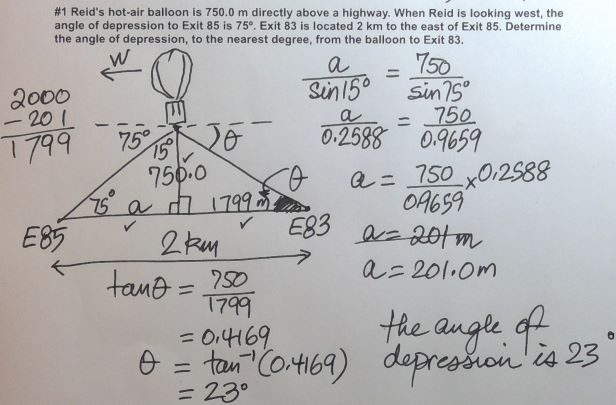 #1 Reid's hot-air balloon is 750.0 m directly above a highway. When Reid is looking west, the
angle of depression to Exit 85 is 75°. Exit 83 is located 2 km to the east of Exit 85. Determine
the angle of depression, to the nearest degree, from the balloon to Exit 83.
W
2000
- 201
1799
75°
15°
θ
750.0
θ
75°
a
1799 m
E85
E83
2 km
a / sin 15° = 750 / sin 75°
a / 0.2588 = 750 / 0.9659
a = 750 / 0.9659 × 0.2588
a = 201 m
a = 201.0 m
tan θ = 750 / 1799
= 0.4169
θ = tan⁻¹ (0.4169)
= 23°
the angle of
depression is 23°